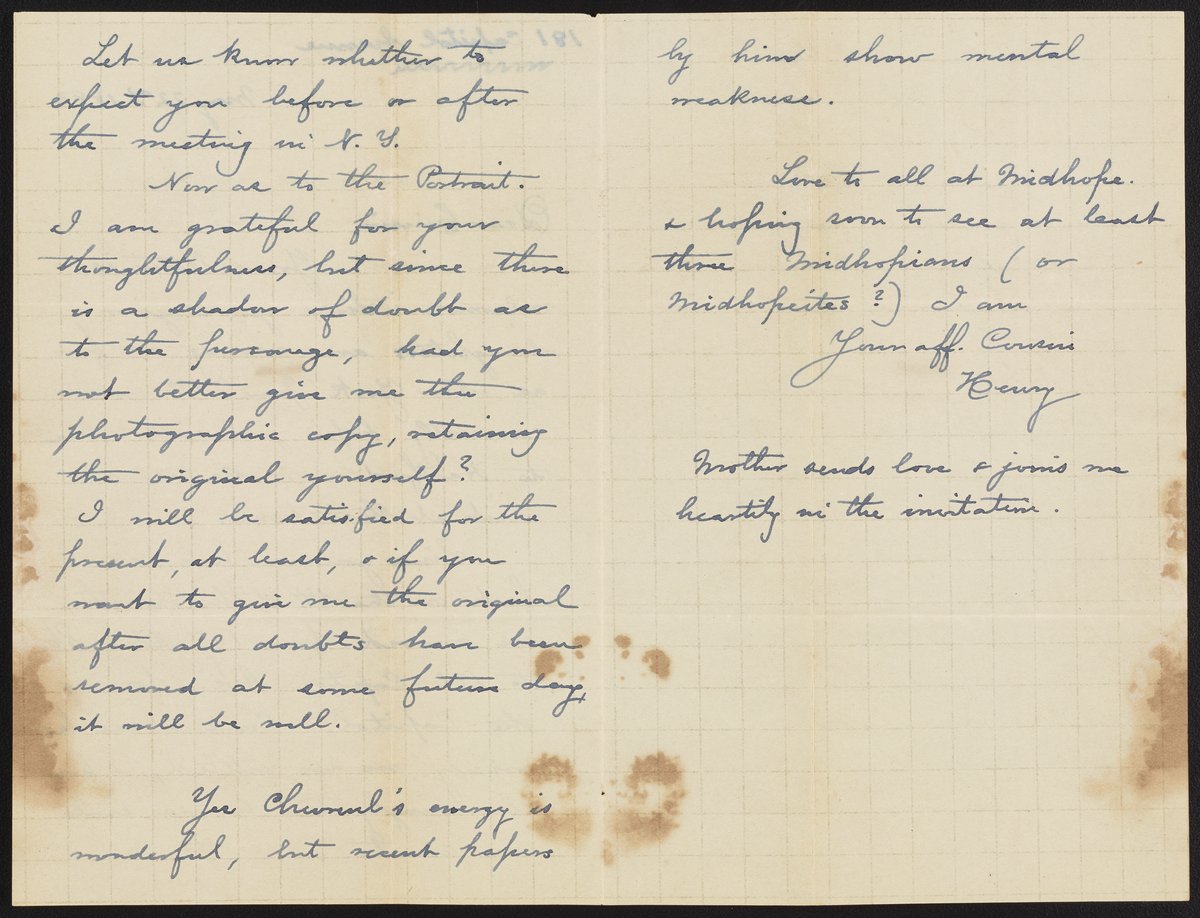 Let us know whether to
expect you before or after
the meeting in N. Y.
Now as to the Portrait.
I am grateful for your
thoughtfulness, but since there
is a shadow of doubt as
to the personage, had you
not better give me the
photographic copy, retaining
the original yourself?
I will be satisfied for the
present, at least, & if you
want to give me the original
after all doubts have been
removed at some future day,
it will be well.
Yes Chevreul's energy is
wonderful, but recent papers
by him show mental
weakness.
Love to all at Midhope.
& hoping soon to see at least
three Midhopians (or
Midhopeites?) I am
Your aff. Cousin
Henry
Mother sends love & joins me
heartily in the invitation.